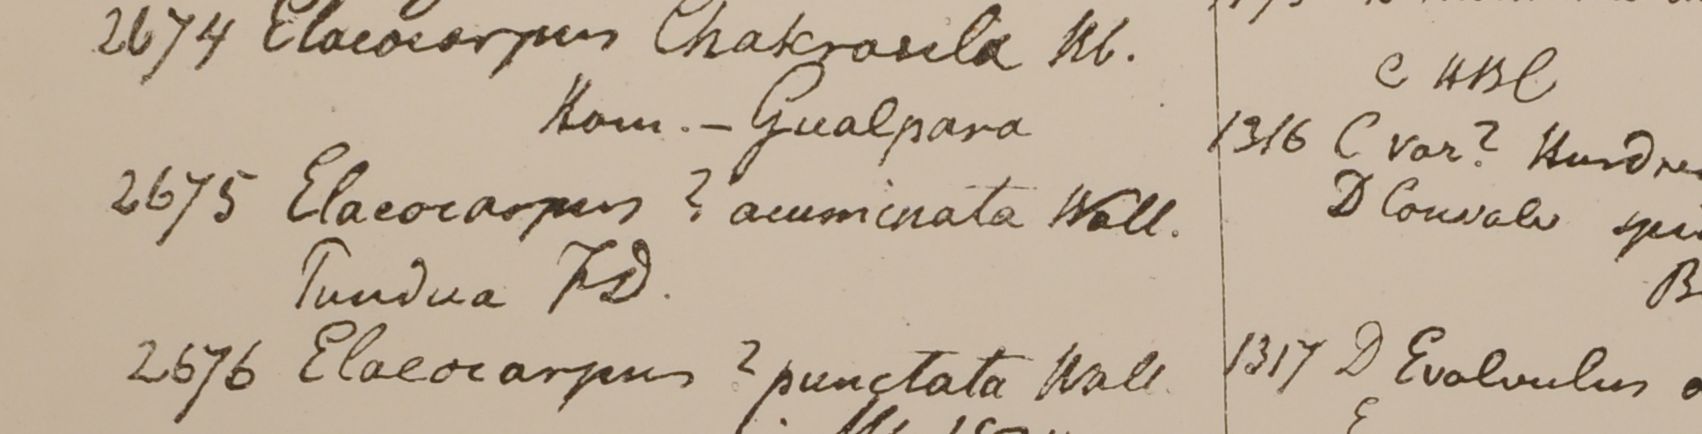 2674 Elaeocarpus Chakrasila Hb.
Ham. – Gualpara
2675 Elaeocarpus ? acuminata Wall.
Tundua FD.
2676 Elaeocarpus ? punctata Wall
C HBC
1316 C var?
D Convolv
B
1317 D Evolvulus
E